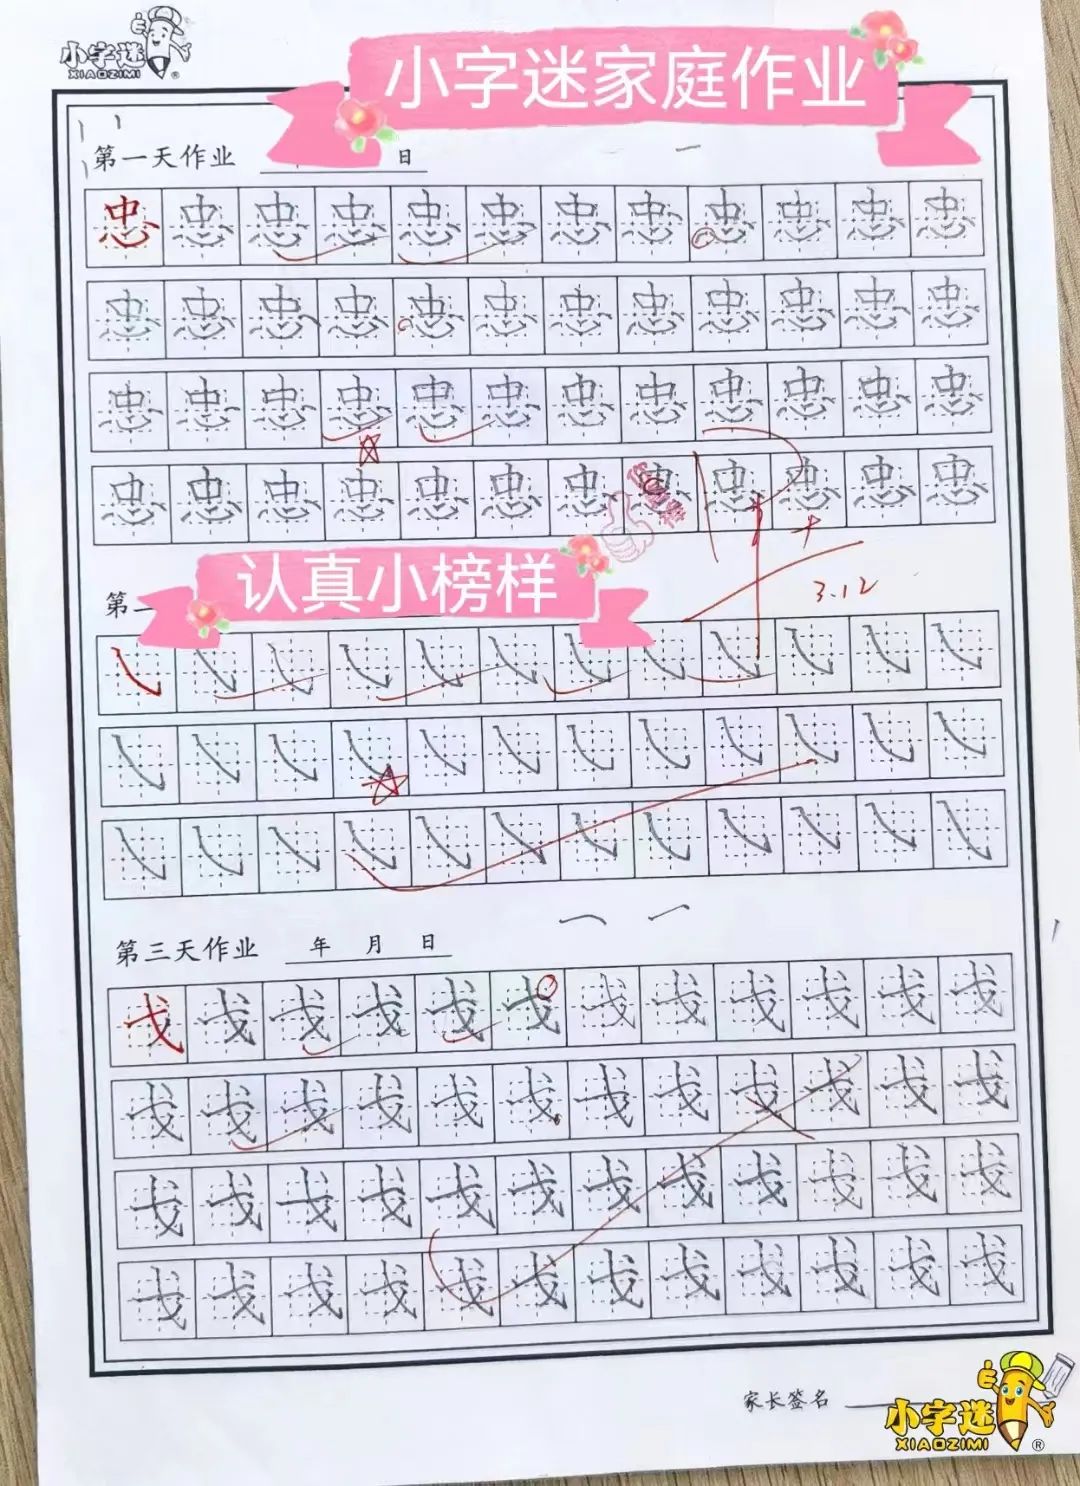 小字迷
XIAOZIMI®
小字迷家庭作业
第一天作业 日
忠忠忠忠忠忠忠忠忠忠忠忠
忠忠忠忠忠忠忠忠忠忠忠忠
忠忠忠忠忠忠忠忠忠忠忠忠
忠忠忠忠忠忠忠忠忠忠忠忠
认真小榜样
第二
3.12
第三天作业 年 月 日
戈戈戈戈戈戈戈戈戈戈戈戈
戈戈戈戈戈戈戈戈戈戈戈戈
戈戈戈戈戈戈戈戈戈戈戈戈
戈戈戈戈戈戈戈戈戈戈戈戈
家长签名
小字迷
XIAOZIMI®